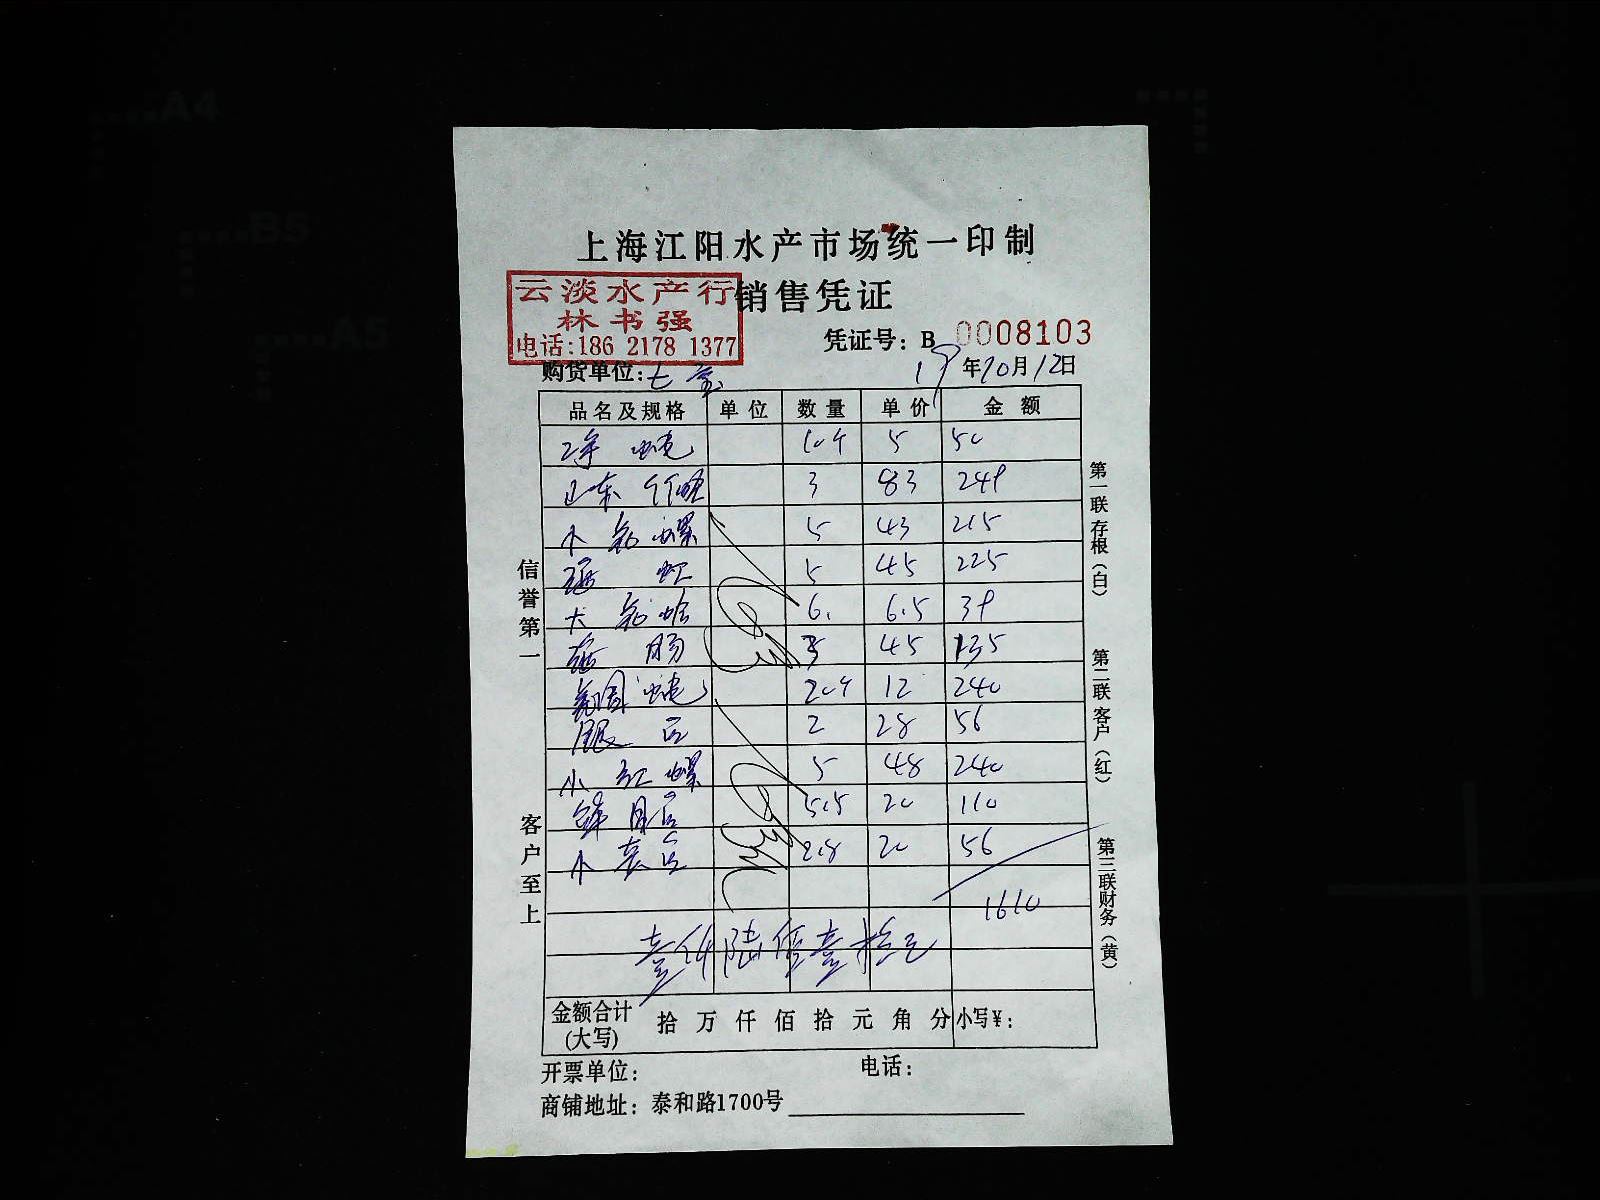 上海江阳水产市场统一印制
销售凭证
云淡水产行
林书强
电话:186 2178 1377
凭证号: B 0008103
购货单位:七宝 19年10月12日
品名及规格 单位 数量 单价 金额
10个 5 50
山东 3 83 249
小 螺 5 43 215
海虹 5 45 225
大 蛤 6. 6.5 39
海肠 3 45 135
20个 12 240
2 28 56
小红螺 5 48 240
5.5 20 110
小 2.8 20 56
1610
壹仟陆佰壹拾元
金额合计(大写) 拾 万 仟 佰 拾 元 角 分 小写¥:
开票单位: 电话:
商铺地址: 泰和路1700号
信誉第一
客户至上
第一联存根(白)
第二联客户(红)
第三联财务(黄)
A4
B5
A5